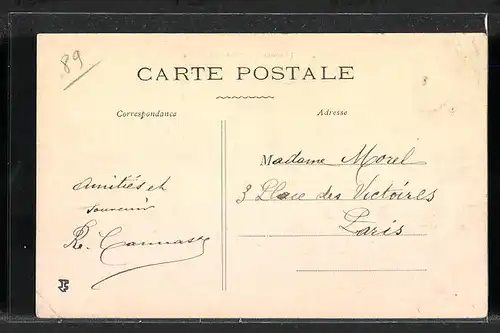 89
CARTE POSTALE
Correspondance
Adresse
Amitiés et
souvenir
Madame Morel
3 Place des Victoires
Paris